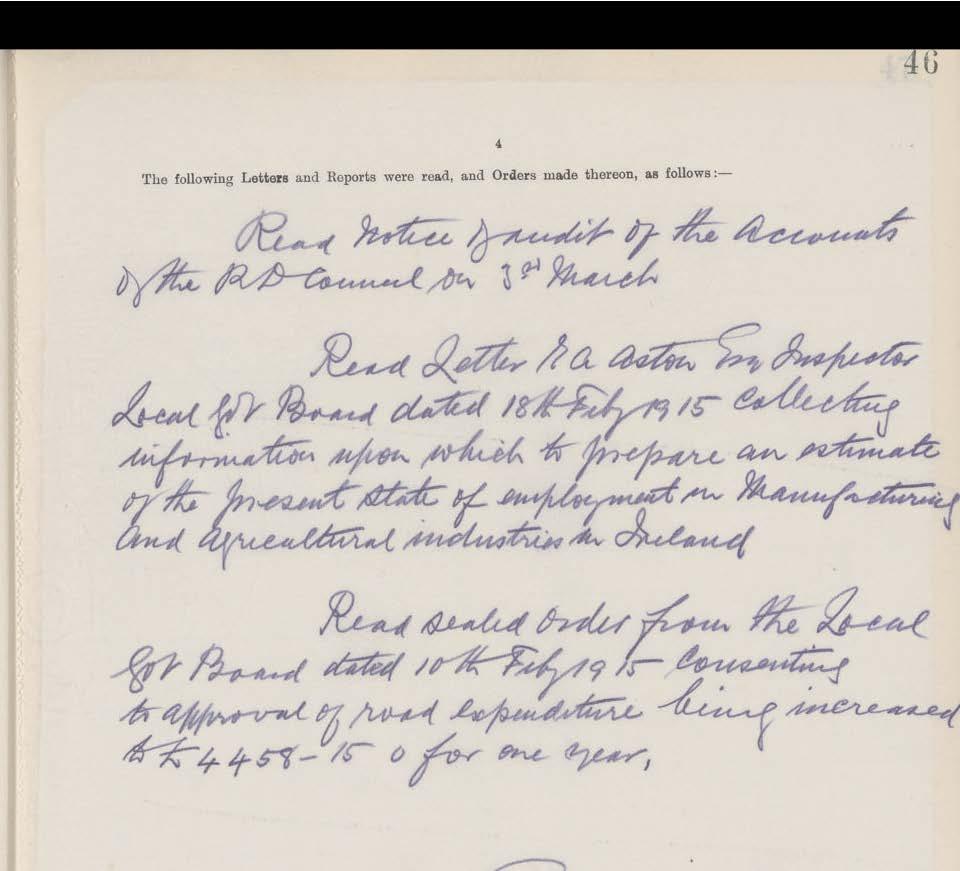 46
4
The following Letters and Reports were read, and Orders made thereon, as follows:—
Read Notice of audit of the Accounts
of the R D Council on 3rd March
Read Letter E A Aston Esq Inspector
Local Govt Board dated 18th Feby 1915 Collecting
information upon which to prepare an estimate
of the present state of employment in Manufacturing
and Agricultural industries in Ireland
Read sealed order from the Local
Govt Board dated 10th Feby 1915 Consenting
to approval of road expenditure being increased
to £4458-15 0 for one year,